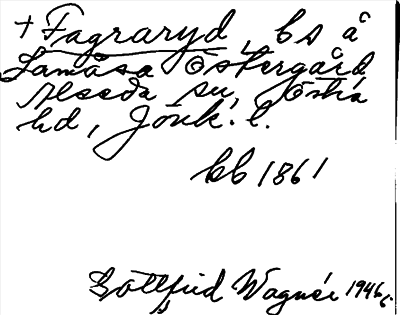 + Fagraryd, bs å
Lamåsa Östergård,
Reseda sn, Östra
hd, Jönk. l.
kb 1861
Gottfrid Wagnér 1946